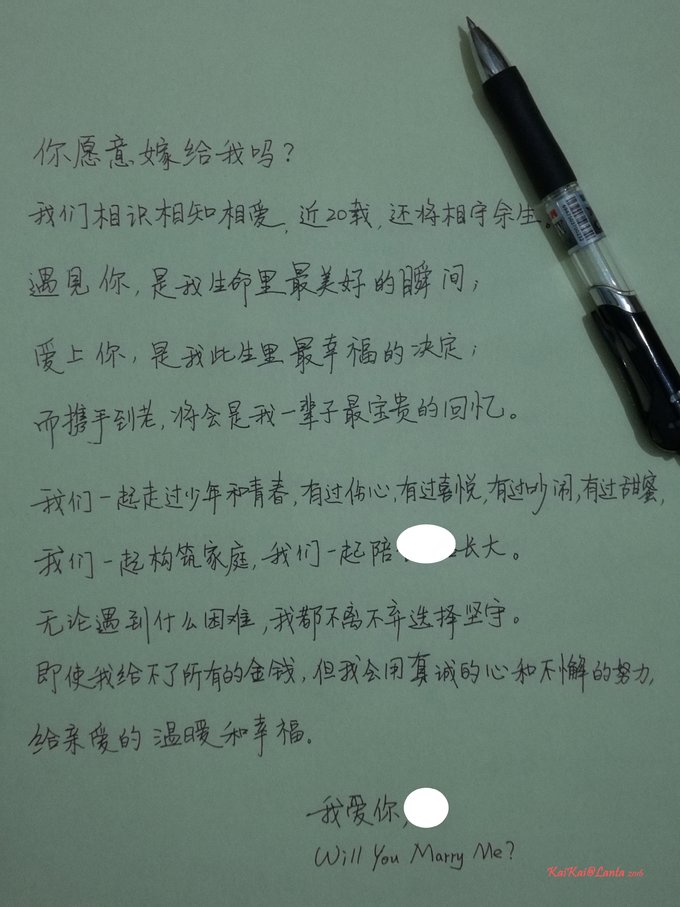 你愿意嫁给我吗？
我们相识相知相爱,近20载,还将相守余生。
遇见你,是我生命里最美好的瞬间；
爱上你,是我此生里最幸福的决定；
而携手到老,将会是我一辈子最宝贵的回忆。
我们一起走过少年和青春,有过伤心,有过喜悦,有过吵闹,有过甜蜜,
我们一起构筑家庭,我们一起陪长大。
无论遇到什么困难,我都不离不弃选择坚守。
即使我给不了所有的金钱,但我会用真诚的心和不懈的努力,
给亲爱的温暖和幸福。
我爱你,
Will You Marry Me?
KaiKai@Lanta 2016